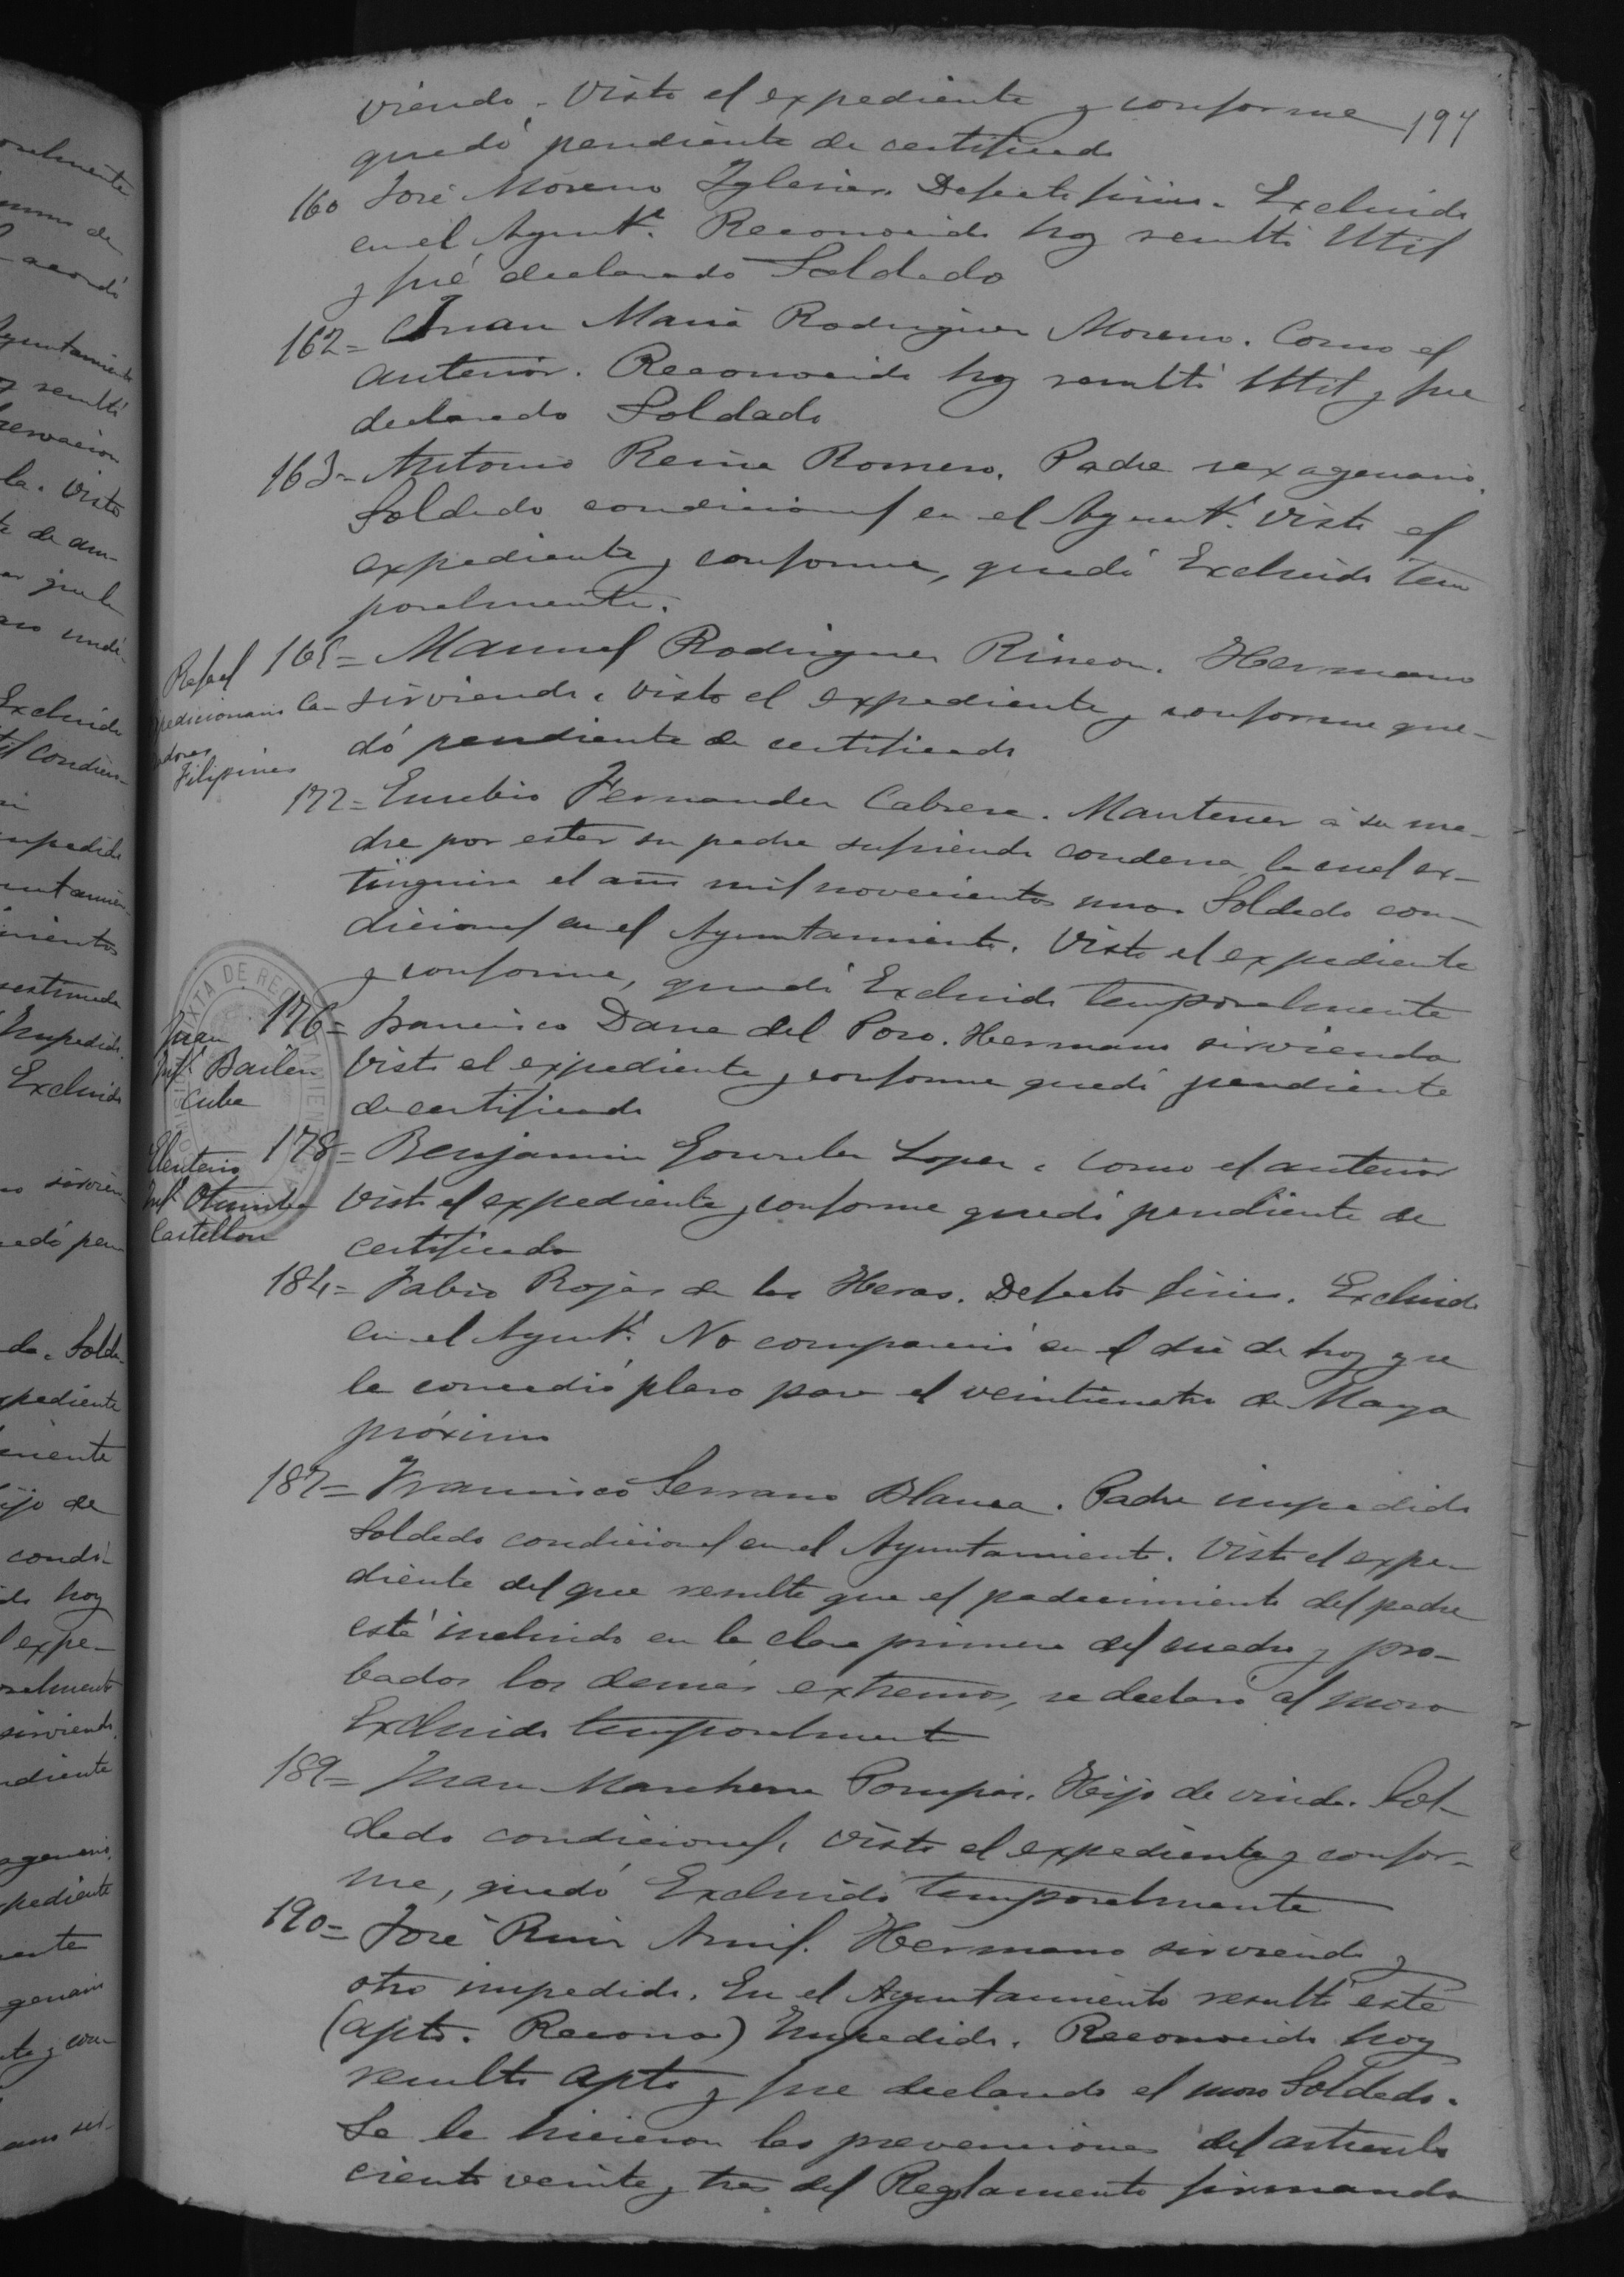 194
viendo. Visto el expediente y conforme
quedó pendiente de certificado
160 José Moreno Iglesias. Defecto físico. Excluido
en el Ayuntº. Reconocido hoy resultó Util
y fué declarado Soldado
162= Juan María Rodriguez Moreno. Como el
anterior. Reconocido hoy resultó Util y fue
declarado Soldado
163= Antonio Reina Romero. Padre sexagenario.
Soldado condicional en el Ayuntº. Visto el
expediente y conforme, quedó Excluido tem
poralmente.
Rafael
165= Manuel Rodriguez Rincon. Hermano
pedicionario Ca-
sirviendo. Visto el expediente y conforme que-
zadores
dó pendiente de certificado
Filipinas
172= Eusebio Fernandez Cabrera. Mantener á su ma-
dre por estar su padre sufriendo condena la cual ex-
tinguira el año mil novecientos uno. Soldado con-
dicional en el Ayuntamiento. Visto el expediente
y conforme, quedó Excluido temporalmente
Juan
176= Francisco Dana del Pozo. Hermano sirviendo
Infª Bailén
Visto el expediente y conforme quedó pendiente
Cuba
de certificado
Eleuterio
178= Benjamin Gonzalez Lopez. Como el anterior
Infª Otumba
Visto el expediente y conforme quedó pendiente de
Castellon
certificado
MIXTA DE RECLUTAMIENTO
184= Fabio Rojas de las Heras. Defecto físico. Excluido
en el Ayuntº. No compareció en el día de hoy y se
le concedió plazo para el veinticuatro de Mayo
próximo
187= Francisco Serrano Blanca. Padre impedido
Soldado condicional en el Ayuntamiento. Visto el expe-
diente del que resulta que el padecimiento del padre
está incluido en la clase primera del cuadro y pro-
bados los demás extremos, se declaró al mozo
Excluido temporalmente
189= Juan Marchena Pompas. Hijo de viuda. Sol-
dado condicional. Visto el expediente y confor-
me, quedó Excluido temporalmente
190= José Ruiz Arnil. Hermano sirviendo y
otro impedido. En el Ayuntamiento resultó este
(apto. Recono) Impedido. Reconocido hoy
resultó apto y fue declarado el mozo Soldado.
Se le hicieron las prevenciones del artículo
ciento veinte y tres del Reglamento firmando